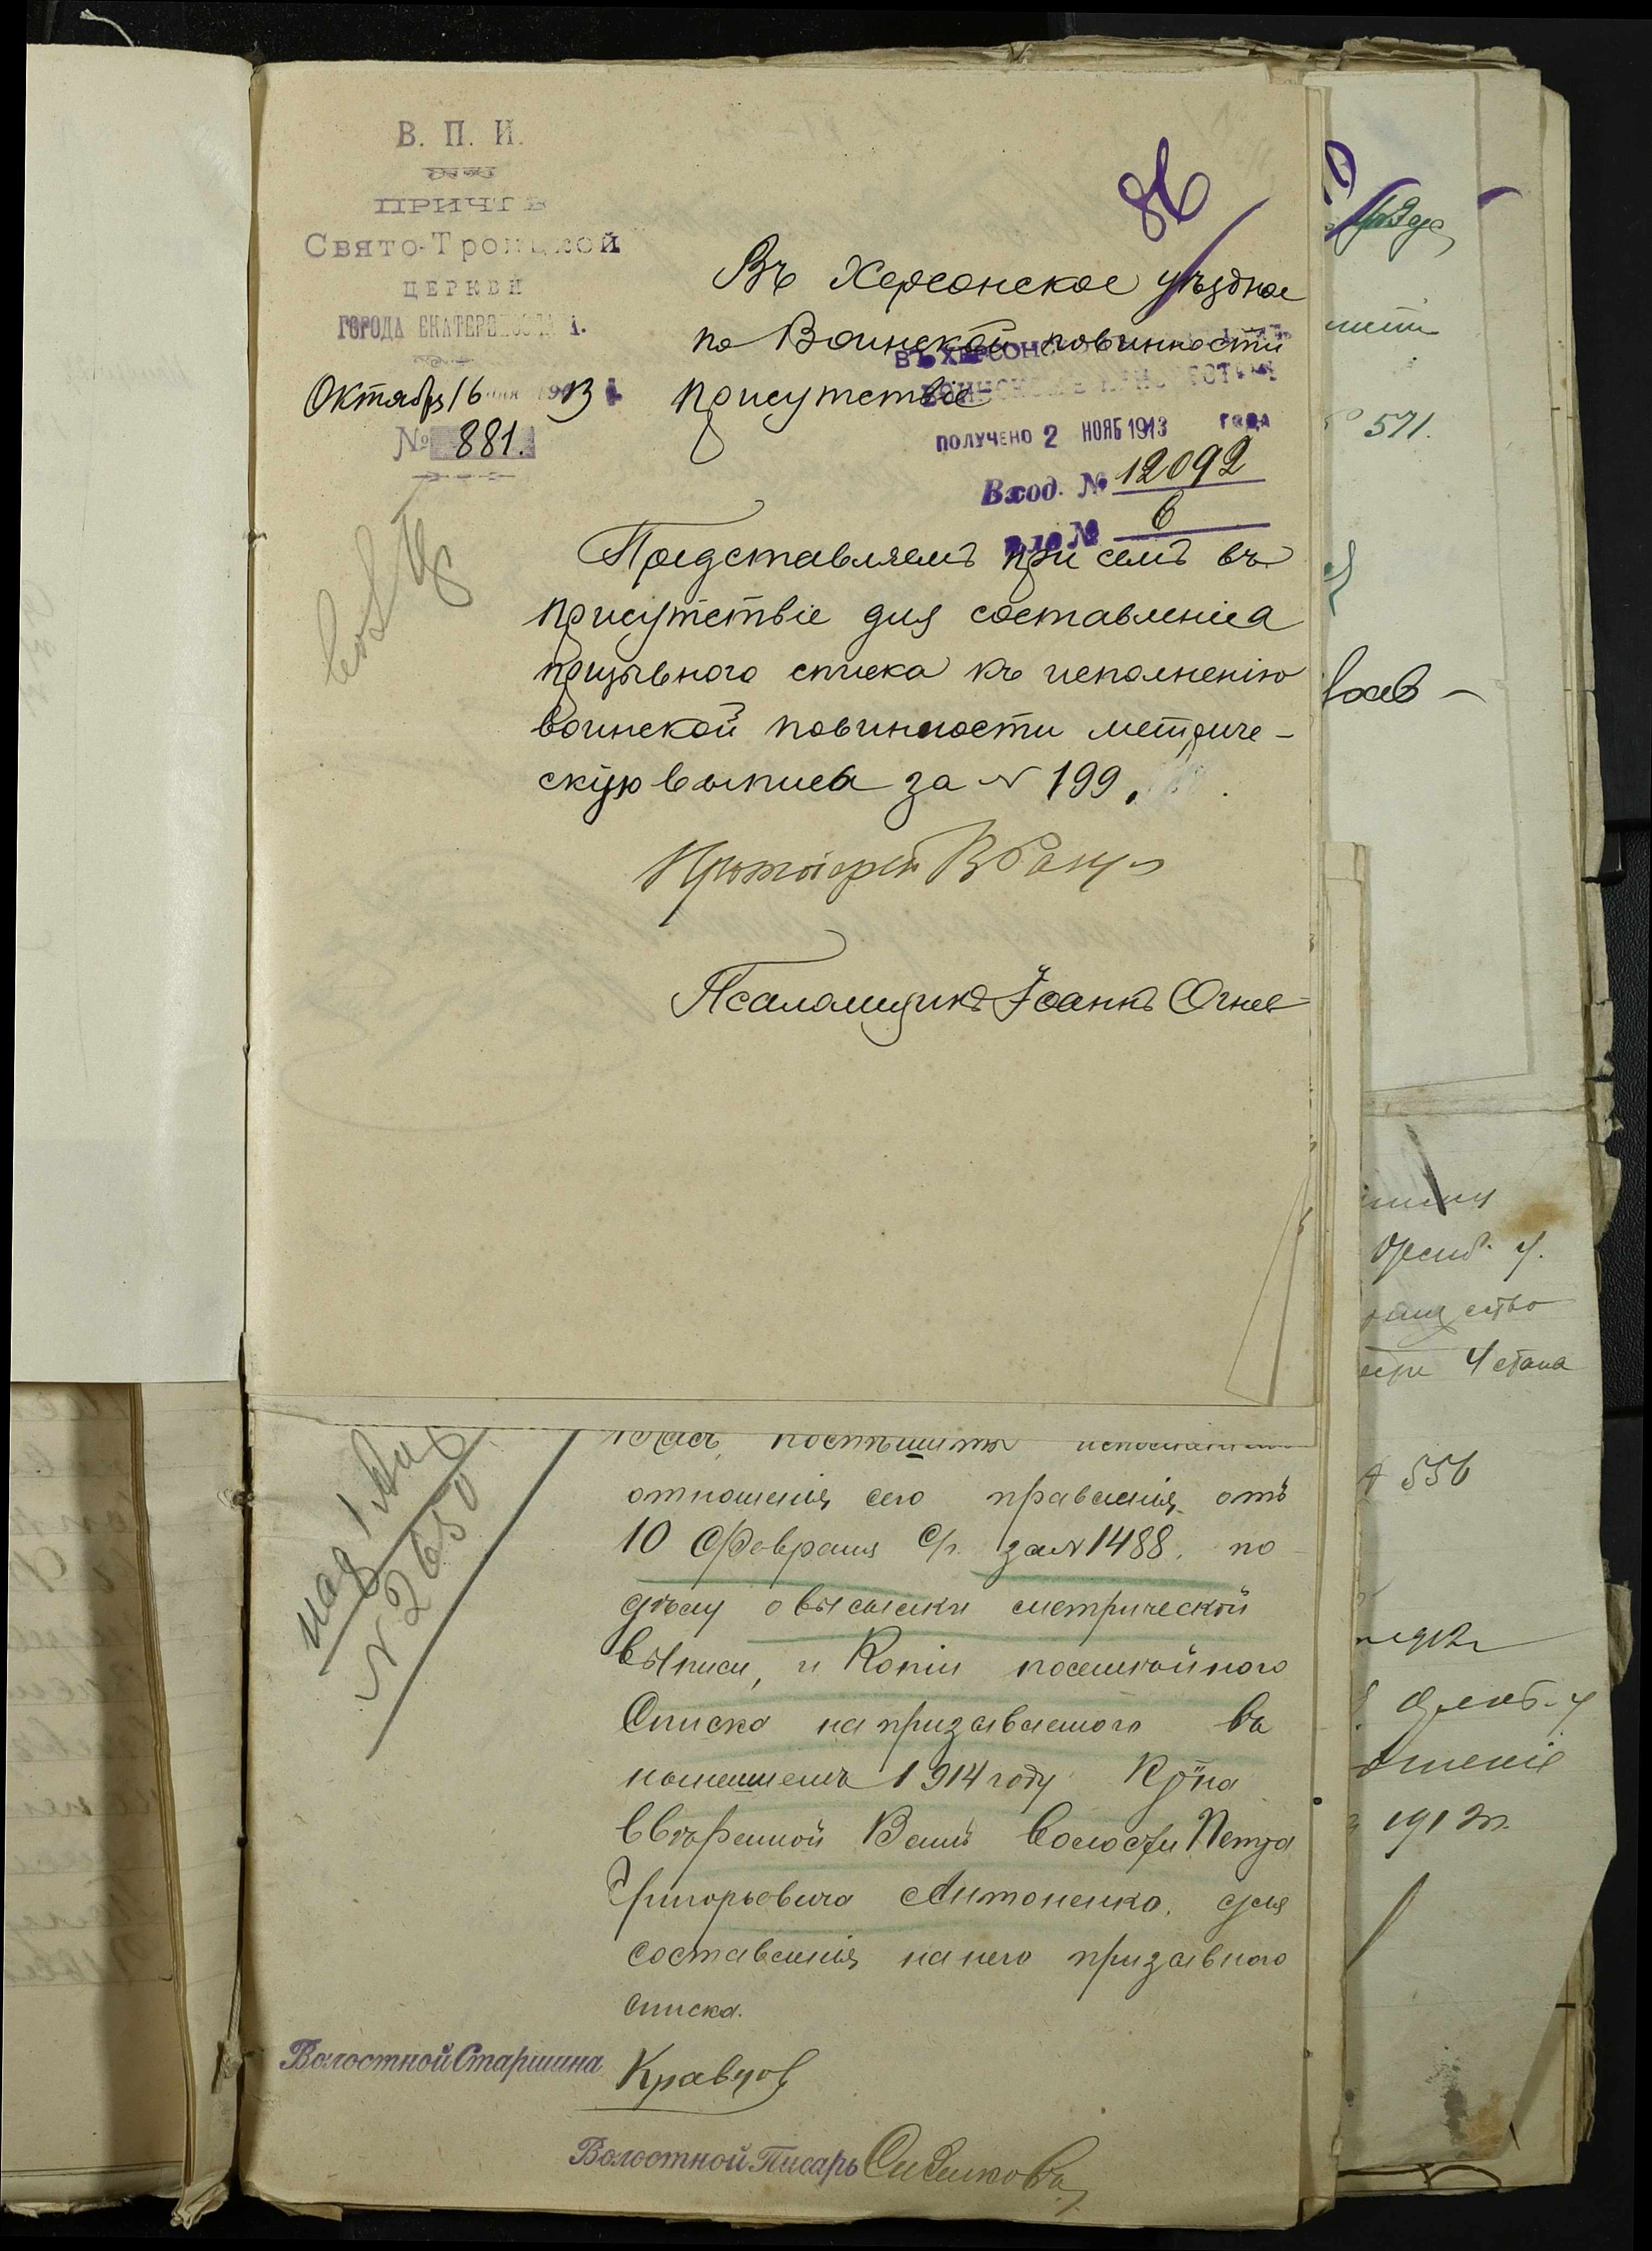 В. П. И.
ПРИЧТЪ
Свято-Троицкой
ЦЕРКВИ
ГОРОДА ЕКАТЕРИНОСЛАВА.
Октября 16 дня 1913
№ 881.
86
Въ Херсонское уѣздное
по Воинской повинности
присутствіе
ВЪ ХЕРСОНСКОЕ
ВОИНСКОЕ ПРИСУТСТВІЕ
ПОЛУЧЕНО 2 НОЯБ 1913 ГОДА
Вход. № 12092
дѣло № 6
Представляемъ при семъ въ
присутствіе для составленіа
призывного списка къ исполненію
воинской повинности метриче-
скую выпись за № 199.
Протоіерей В
Псаломщикъ Іоаннъ Огнев
поспѣшить исполненіемъ
отношенія сего правленія отъ
10 Февраля с/г. за № 1488. по
дѣлу о высылки метрической
выписи, и Копіи посемейного
Списка на призываемого въ
нынешнемъ 1914 году Кр-на
ввѣренной Вамъ Волости Петра
Григорьевича Антоненко, для
составленія на него призывного
списка.
мая 1 дня
№ 2650
Волостной Старшина Кравцов
Волостной Писарь
№ 571.
4 стана
556
1912 г.